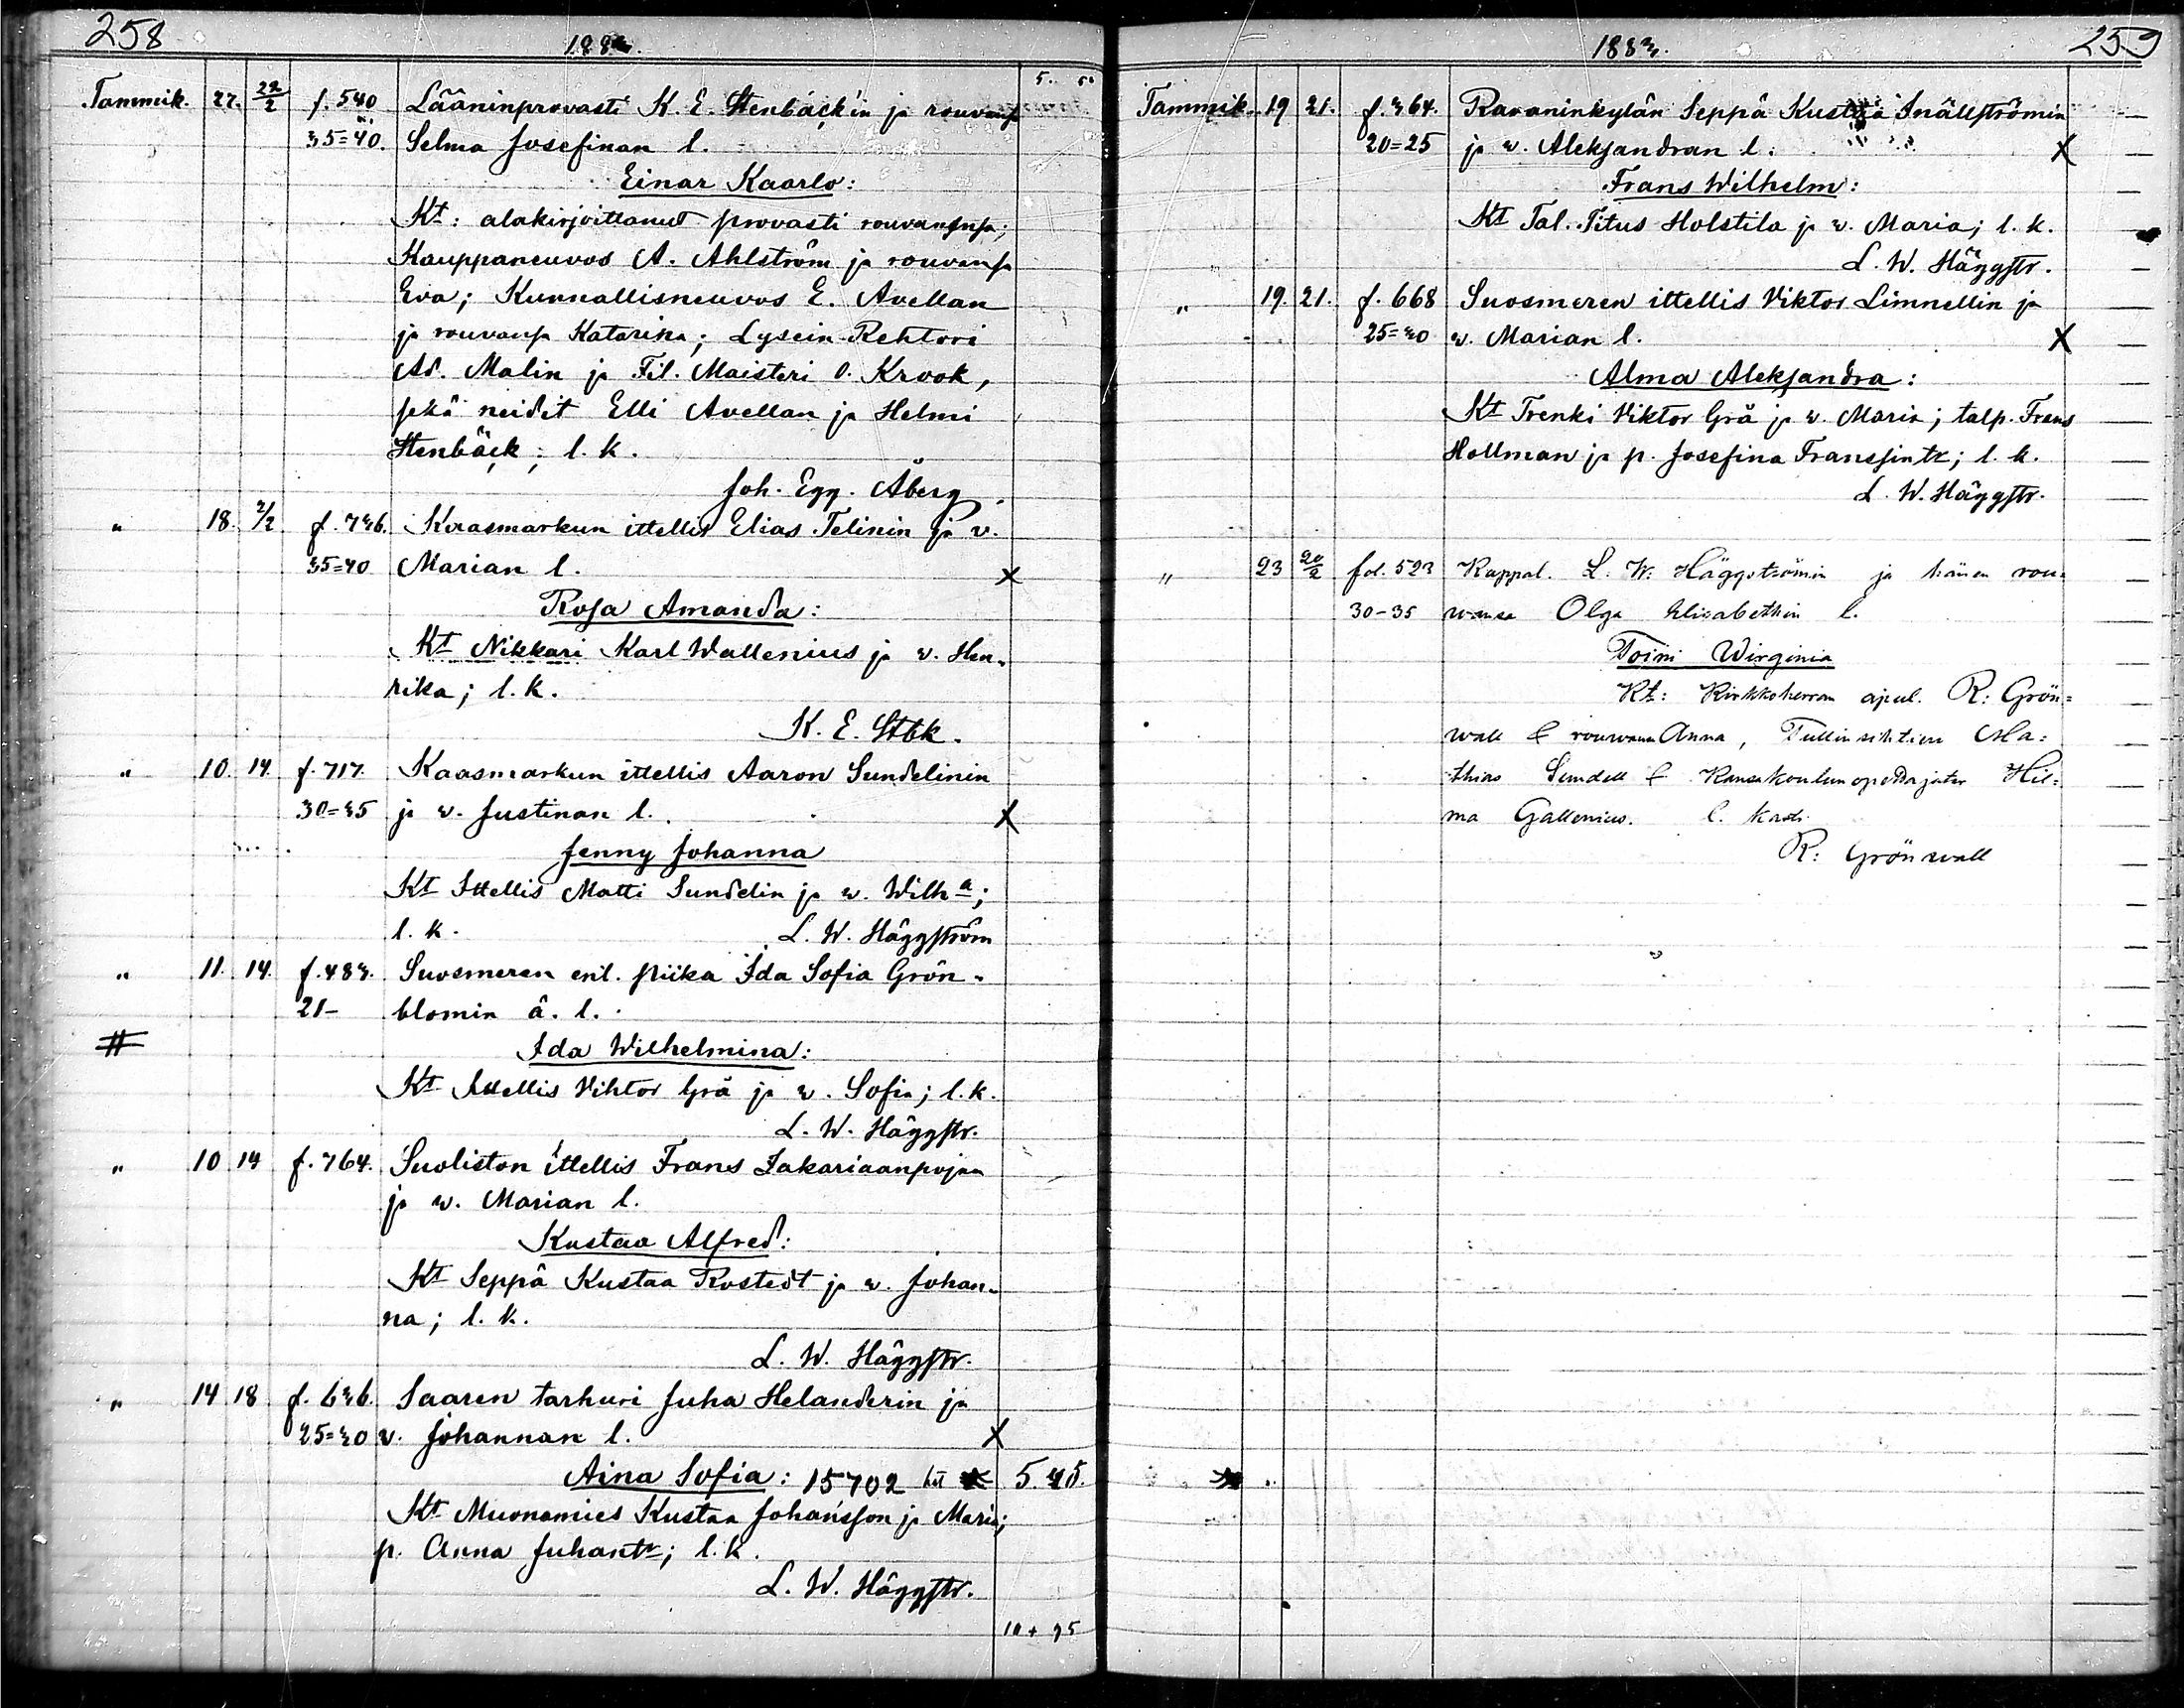 258
1883.
5. 5.
Tammik. 27. 22/2 f. 540 Lääninprovasti K. E. Stenbäck'in ja rouvansa
35=40. Selma Josefinan l.
Einar Kaarlo:
Kt: alakirjoittanut provasti rouvansa;
Kauppaneuvos A. Ahlström ja rouvansa
Eva; Kunnallisneuvos E. Avellan
ja rouvansa Katarina; Lysein Rehtori
Ad. Malin ja Fil. Maisteri O. Krook,
sekä neidit Elli Avellan ja Helmi
Stenbäck; l. k.
Joh. Egg. Åberg.
" 18. 2/2 f. 736. Kaasmarkun ittellis Elias Telinin ja v.
35=40 Marian l. X
Rosa Amanda:
Kt Nikkari Karl Wallenius ja w. Hen-
rika; l. k.
K. E. Stbk.
" 10. 14. f. 717. Kaasmarkun ittellis Aaron Sundelinin
30=35 ja w. Justinan l. X
Jenny Johanna
Kt Ittellis Matti Sundelin ja w. Wilh a;
l. k. L. W. Häggström
" 11. 14. f. 483. Suosmeren ent. piika Ida Sofia Grön-
21- blomin ä. l.
# Ida Wilhelmina:
Kt Ittellis Vihtor Grä ja w. Sofia; l. k.
L. W. Häggstr.
" 10 14 f. 764. Suoliston ittellis Frans Sakariaanpojan
ja w. Marian l.
Kustaa Alfred:
Kt Seppä Kustaa Rostedt ja w. Johan-
na; l. k.
L. W. Häggstr.
" 14 18 f. 636. Saaren tarhuri Juha Helanderin ja
25=30 v. Johannan l. X
Aina Sofia: 15702 5.45.
Kt Muonamies Kustaa Johansson ja Maria;
p. Anna Juhantr; l. k.
L. W. Häggstr.
10 + 95
1883.
259
Tammik. 19 21. f. 364. Ravaninkylän Seppä Kustaa Snällströmin
20=25 ja w. Aleksandran l. X
Frans Wilhelm:
Kt Tal. Titus Holstila ja w. Maria; l. k.
L. W. Häggstr.
" 19. 21. f. 668 Suosmeren ittellis Viktor Limnellin ja
25=30 w. Marian l. X
Alma Aleksandra:
Kt Trenki Viktor Grä ja w. Maria; talp. Frans
Hollman ja p. Josefina Fransintr; l. k.
L. W. Häggstr.
" 23 20/2 fol. 523 Kappal. L. W. Häggströmin ja hänen rou=
30-35 wansa Olga Elisabethin l.
Toini Wirginia
Kt: Kirkkoherran apul. R: Grön=
wall & rouwansa Anna, Tullinsihteeri Ma=
thias Sundell & Kansakoulunopettajatar Hil=
ma Gallenius. l. kast.
R: Grönwall